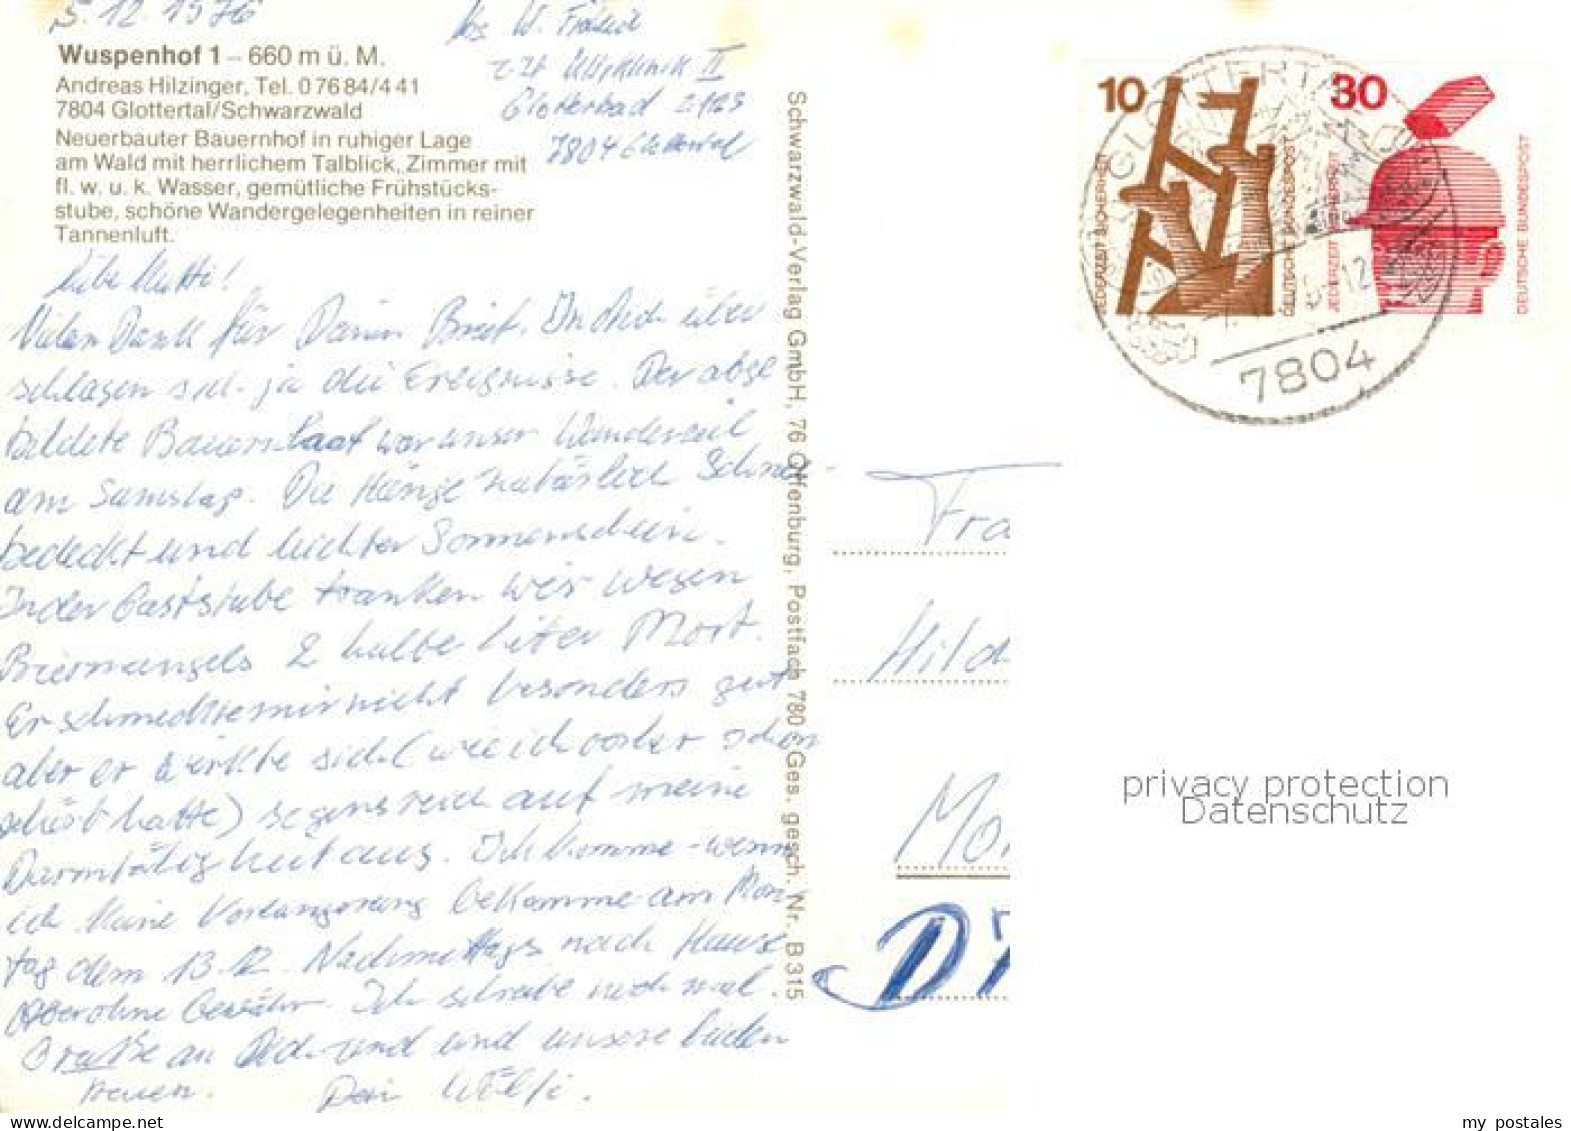 5.12.1976
Wuspenhof 1 – 660 m ü. M.
Andreas Hilzinger, Tel. 0 76 84/4 41
7804 Glottertal/Schwarzwald
Neuerbauter Bauernhof in ruhiger Lage
am Wald mit herrlichem Talblick, Zimmer mit
fl. w. u. k. Wasser, gemütliche Frühstücks-
stube, schöne Wandergelegenheiten in reiner
Tannenluft.
W.
II
Glotterbad
7804 Glottertal
Liebe Mutti!
Vielen Dank für Deinen Brief. In Dich über
schlagen sich ja die Ereignisse. Der abge
bildete Bauern war unser Wanderziel
am Samstag. Die Hänge natürlich Schnee-
bedeckt und lichter Sonnenschein.
In der Gaststube tranken wir wegen
Biermangels 2 halbe Liter Most.
Er schmeckte mir nicht besonders gut
aber er wirkte sich (wie ich vorher schon
gehört hatte) segensreich auf meine
Darmtätigkeit aus. Ich komme - wenn
ich keine Verlängerung bekomme am Mon-
tag dem 13.12. Nachmittags nach Hause
aber ohne Gewähr. Ich schreibe noch mal.
Grüße an Dich und und unsere beiden
Deine
Schwarzwald-Verlag GmbH, 76 Offenburg, Postfach 780 · Ges. gesch. Nr. B 315
10
JEDERZEIT SICHERHEIT
DEUTSCHE BUNDESPOST
30
JEDERZEIT SICHERHEIT
DEUTSCHE BUNDESPOST
GLOTTERTAL
7804
Fra
Hild
Mo
D 7
privacy protection
Datenschutz
my postales